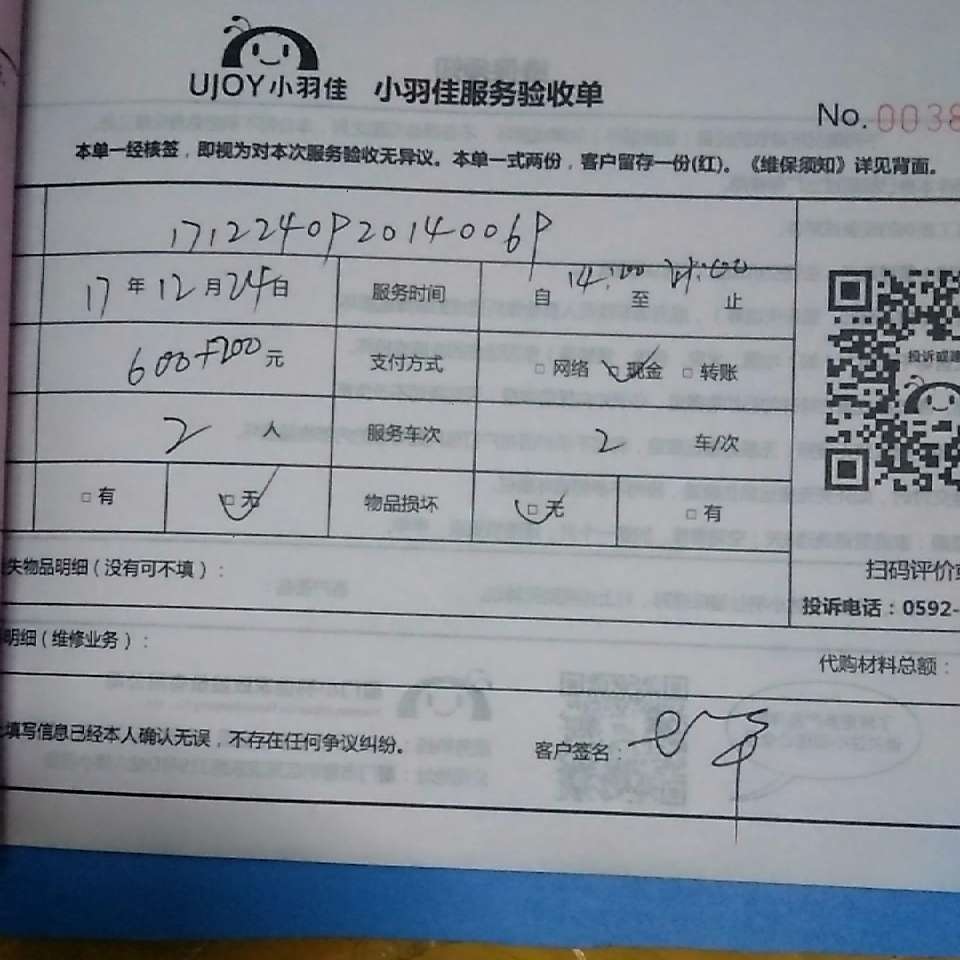 UJOY小羽佳 小羽佳服务验收单
No.0038
本单一经核签，即视为对本次服务验收无异议。本单一式两份，客户留存一份(红)。《维保须知》详见背面。
1712240P2014006P
17年12月24日 服务时间 自14:00至21:00止
600+200元 支付方式 □网络 □现金 □转账
2人 服务车次 2车/次
□有 □无 物品损坏 □无 □有
投诉或建
扫码评价或
失物品明细（没有可不填）：
投诉电话：0592-
明细（维修业务）：
代购材料总额：
填写信息已经本人确认无误，不存在任何争议纠纷。
客户签名：